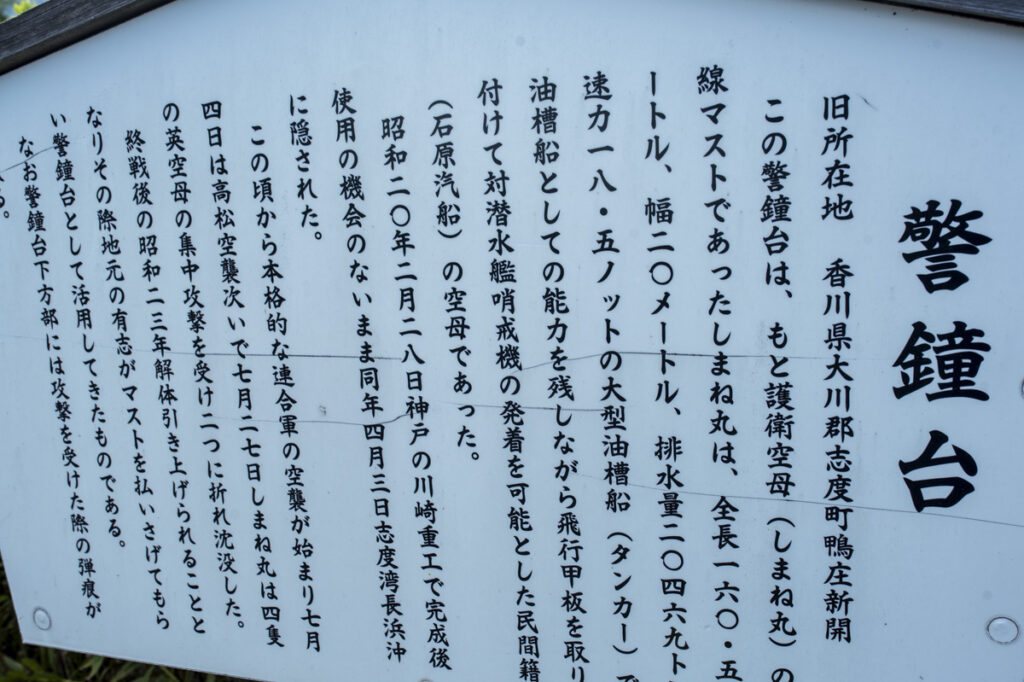 警鐘台
旧所在地　香川県大川郡志度町鴨庄新開
この警鐘台は、もと護衛空母（しまね丸）の
線マストであったしまね丸は、全長一六〇・五
ートル、幅二〇メートル、排水量二〇四六九ト
速力一八・五ノットの大型油槽船（タンカー）で
油槽船としての能力を残しながら飛行甲板を取り
付けて対潜水艦哨戒機の発着を可能とした民間籍
（石原汽船）の空母であった。
昭和二〇年二月二八日神戸の川崎重工で完成後
使用の機会のないまま同年四月三日志度湾長浜沖
に隠された。
この頃から本格的な連合軍の空襲が始まり七月
四日は高松空襲次いで七月二七日しまね丸は四隻
の英空母の集中攻撃を受け二つに折れ沈没した。
終戦後の昭和二三年解体引き上げられることと
なりその際地元の有志がマストを払いさげてもら
い警鐘台として活用してきたものである。
なお警鐘台下方部には攻撃を受けた際の弾痕が
る。